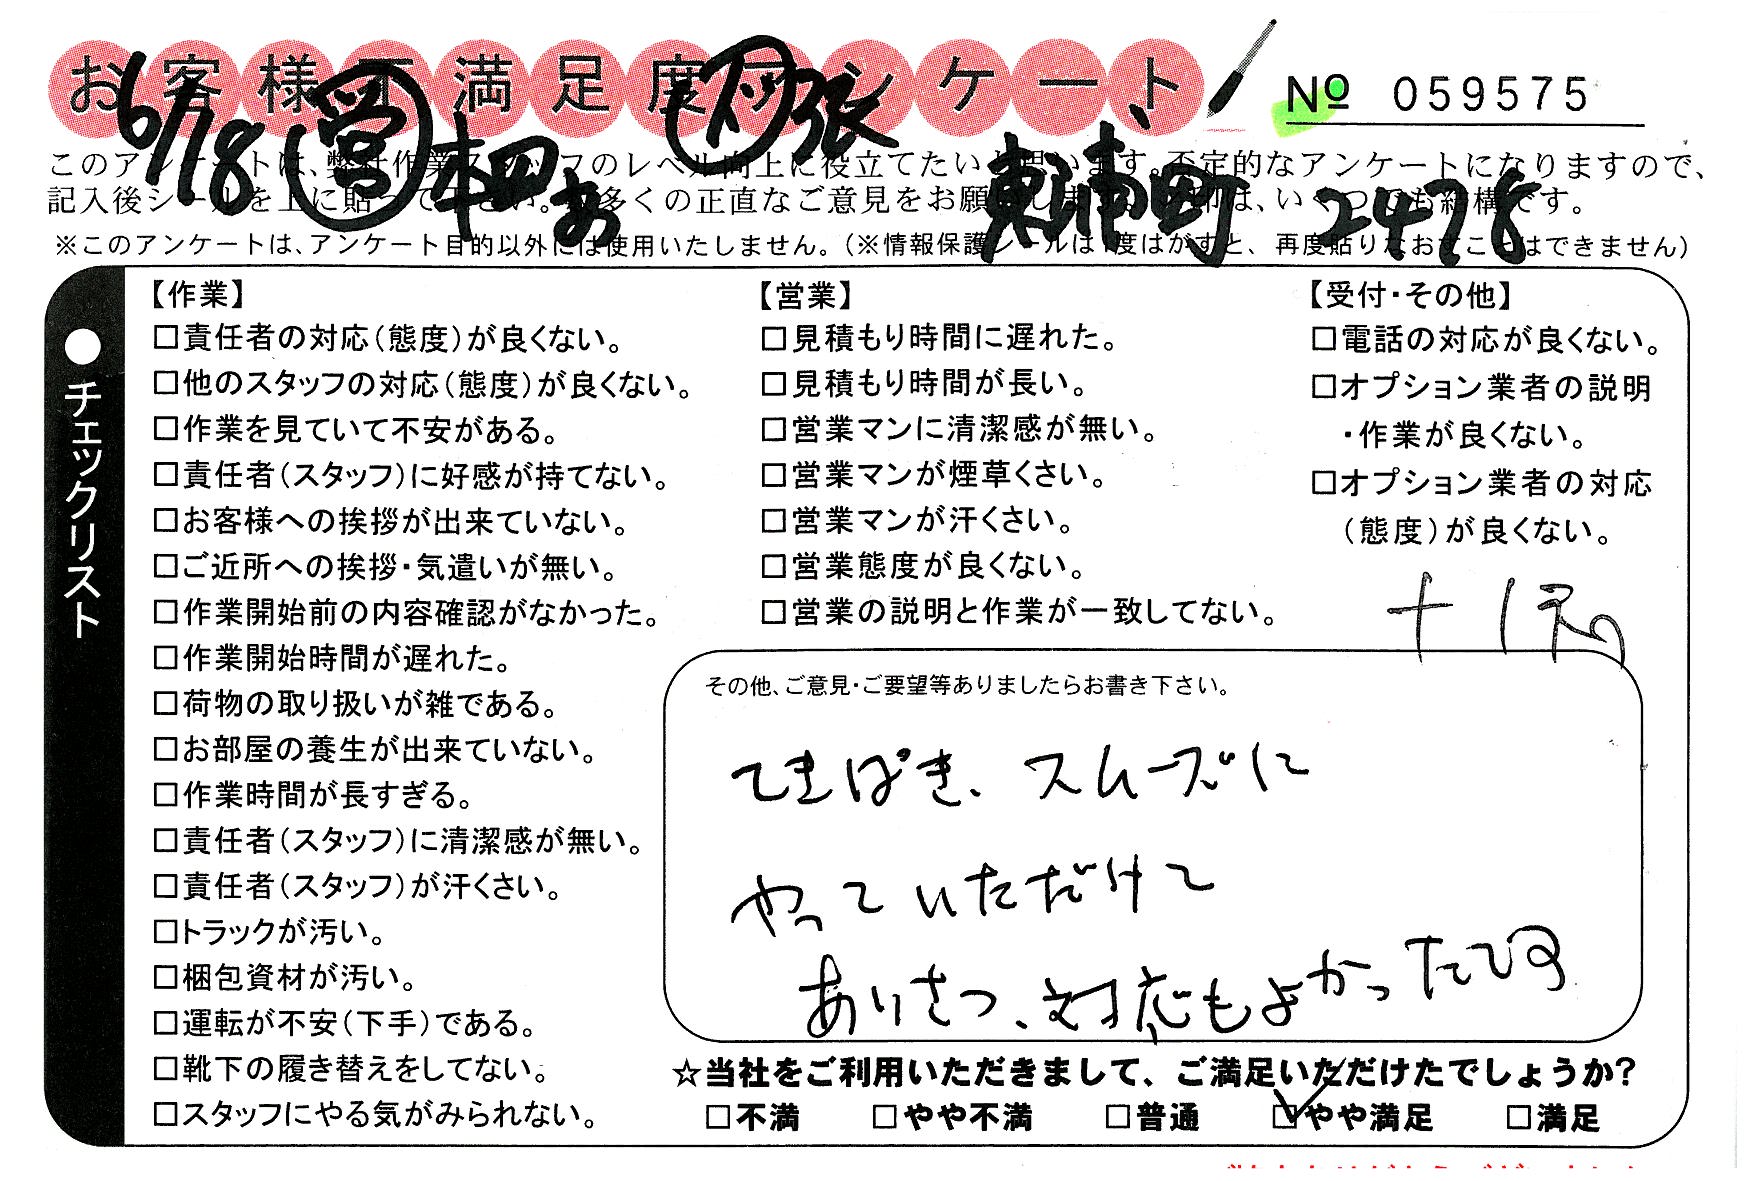 お客様不満足度アンケート
№ 059575
6/18 営 下 張 東浦町 2478
このアンケートは、弊社作業スタッフのレベル向上に役立てたいと思います。否定的なアンケートになりますので、
記入後シールを上に貼って下さい。数多くの正直なご意見をお願いします。印は、いくつでも結構です。
※このアンケートは、アンケート目的以外には使用いたしません。(※情報保護シールは1度はがすと、再度貼りなおすことはできません)
●チェックリスト
【作業】
□責任者の対応(態度)が良くない。
□他のスタッフの対応(態度)が良くない。
□作業を見ていて不安がある。
□責任者(スタッフ)に好感が持てない。
□お客様への挨拶が出来ていない。
□ご近所への挨拶・気遣いが無い。
□作業開始前の内容確認がなかった。
□作業開始時間が遅れた。
□荷物の取り扱いが雑である。
□お部屋の養生が出来ていない。
□作業時間が長すぎる。
□責任者(スタッフ)に清潔感が無い。
□責任者(スタッフ)が汗くさい。
□トラックが汚い。
□梱包資材が汚い。
□運転が不安(下手)である。
□靴下の履き替えをしてない。
□スタッフにやる気がみられない。
【営業】
□見積もり時間に遅れた。
□見積もり時間が長い。
□営業マンに清潔感が無い。
□営業マンが煙草くさい。
□営業マンが汗くさい。
□営業態度が良くない。
□営業の説明と作業が一致してない。
【受付・その他】
□電話の対応が良くない。
□オプション業者の説明
・作業が良くない。
□オプション業者の対応
(態度)が良くない。
その他、ご意見・ご要望等ありましたらお書き下さい。
てきぱき、スムーズに
やっていただけて
ありさつ、対応もよかったです
☆当社をご利用いただきまして、ご満足いただけたでしょうか?
□不満 □やや不満 □普通 ☑やや満足 □満足